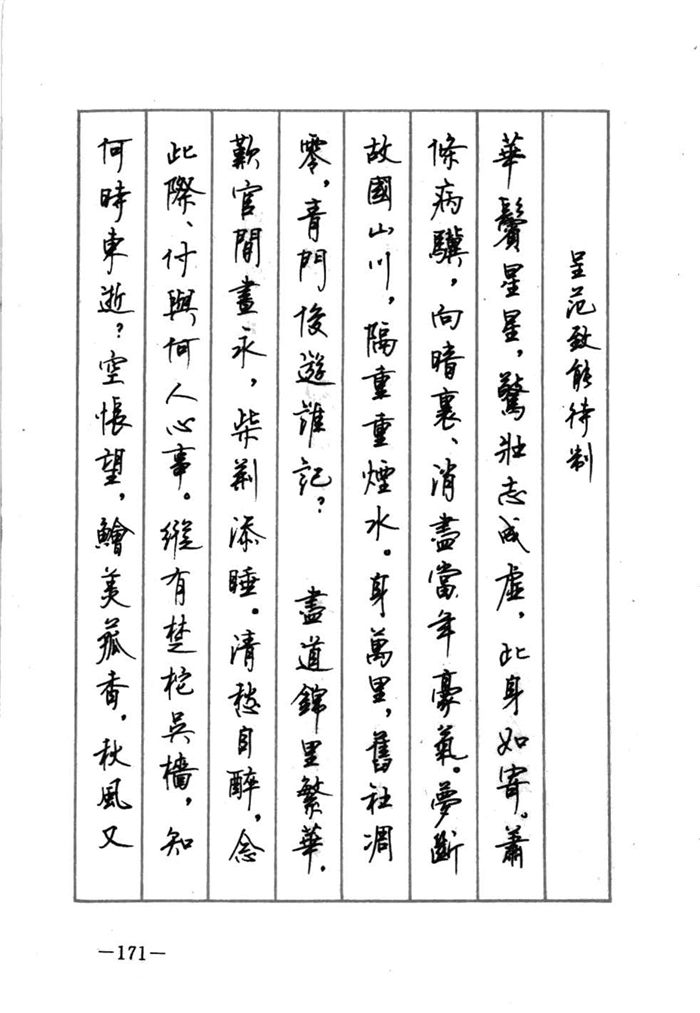 呈范致能待制
華鬢星星,驚壯志成虛,此身如寄。蕭
條病驥,向暗裏、消盡當年豪氣。夢斷
故國山川,隔重重煙水。身萬里,舊社凋
零,青門俊遊誰記? 盡道錦里繁華,
歎官閒晝永,柴荊添睡。清愁自醉,念
此際、付與何人心事。縱有楚柁吳檣,知
何時東逝?空悵望,鱠美菰香,秋風又
—171—